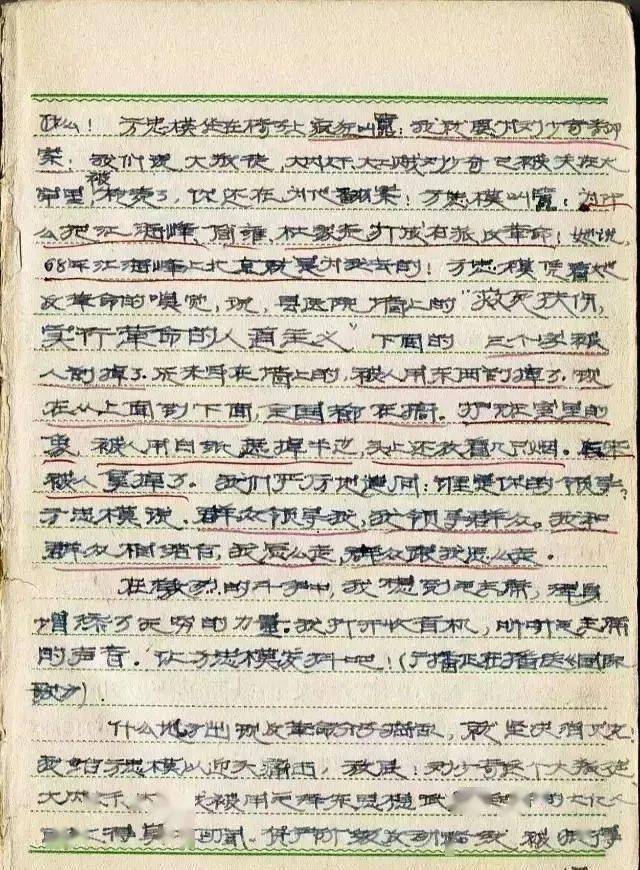 什么！方忠模坐在椅子上疯狂叫嚣：我就要为刘少奇翻
案；我们说大叛徒，大内奸，大工贼刘少奇已被关在大
牢里，被枪毙了，你还在为他翻案！方忠模叫嚣：为什
么把江海峰、打成右派反革命！她说，
68年江海峰上北京就是为我去的！方忠模凭着她
反革命的嗅觉，说，县医院墙上的“救死扶伤，
实行革命的人道主义”下面的三个字被
人割掉了。原来写在墙上的，被人用东西割掉了，现
在从上面到下面，全国都在搞。办公室里的
像，被人用白纸遮掉半边，头上还放着几只烟。后来
被人拿掉了。我们严厉地追问：谁是你的领导？
方忠模说，群众领导我，我领导群众。我和
群众相结合，我怎么走，群众跟我怎么走。
在激烈的斗争中，我想到毛主席，浑身
增添了无穷的力量。我打开收音机，听听毛主席
的声音。让方忠模发抖吧！(广播正在播送《国际
歌》)．
什么地方出现反革命分子捣乱，就坚决消灭之
我给方忠模以迎头痛击，我说：刘少奇这个大叛徒
大内奸，被用毛泽东思想武
资产阶级反动路线被批得